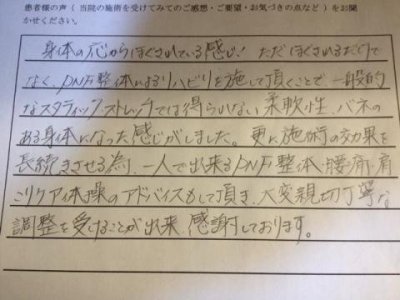 患者様の声(当院の施術を受けてみてのご感想・ご要望・お気づきの点など)をお聞
かせください。
身体の芯からほぐされている感じ!ただほぐされるだけで
なく、PNF整体によるリハビリを施して頂くことで一般的
なスタティックストレッチでは得られない柔軟性、バネの
ある身体になった感じがしました。更に施術の効果を
長続きさせる為、一人で出来るPNF整体、腰痛・肩
こりケア体操のアドバイスもして頂き、大変親切丁寧な
調整を受けることが出来、感謝しております。